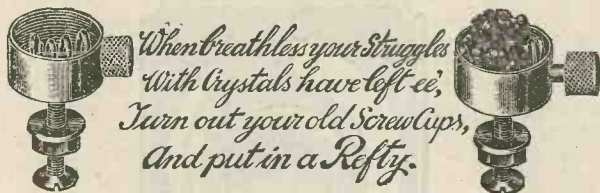 When breathless your Struggles
With Crystals have left 'ee,
Turn out your old Screw Cups,
And put in a Refty.